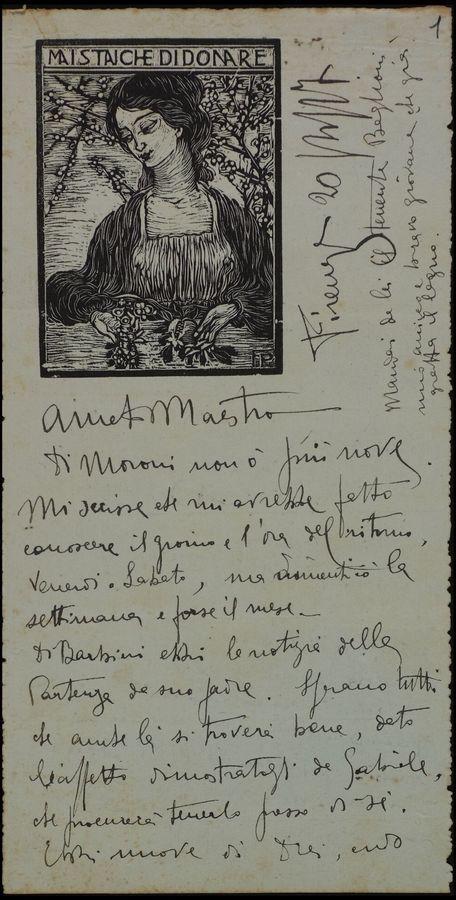 1
MAI STANCHE DI DONARE
Firenze 20
Manderò da lei il Tenente Baglioni
mio amico e bravo giovane che già
il legno.
Amato Maestro
Di Moroni non ò più nove
Mi scrisse che mi avrebbe fatto
conoscere il giorno e l'ora del ritorno,
Venerdì o Sabato, ma dimenticò la
settimana e forse il mese.
Di Barbini ebbi le notizie della
Partenza da suo padre. Sperano tutti
che anche là si troverà bene, dato
l'affetto dimostratogli da Gabriele,
che procurerà tenerlo presso di sé.
Ebbi nuove di